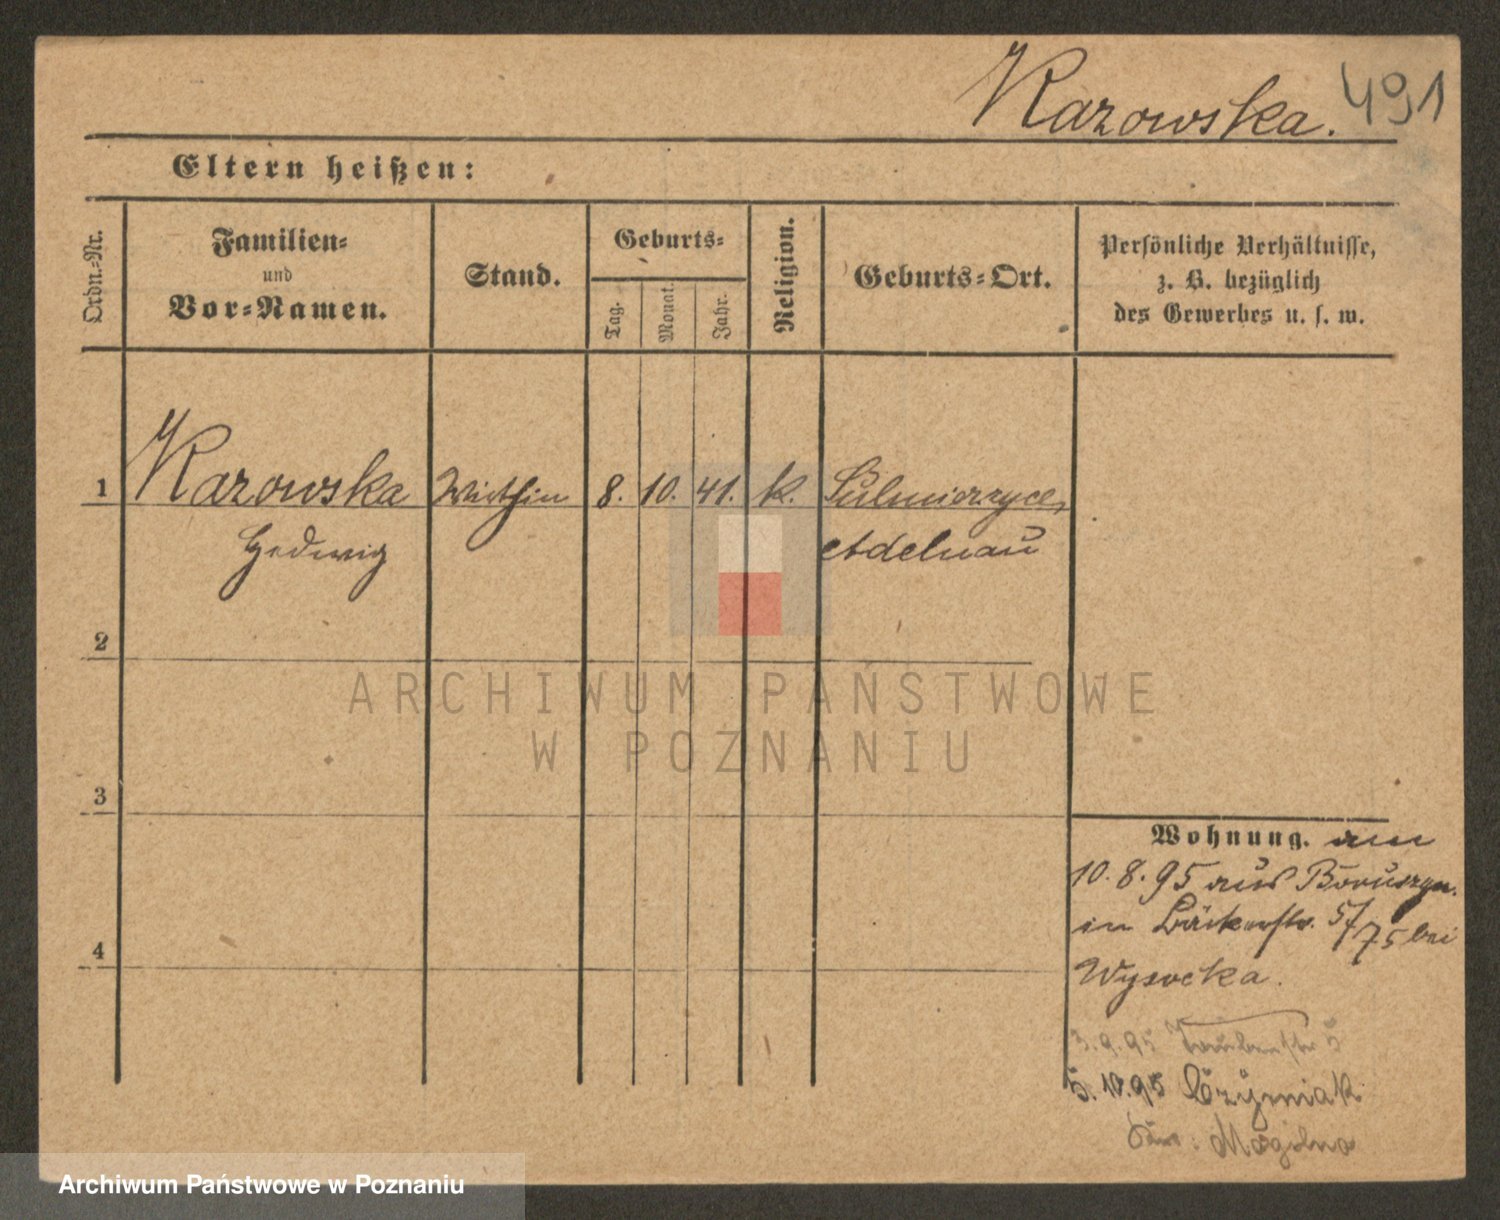 Kazowska. 491
Eltern heißen:
Ordn.-Nr.
Familien-
und
Vor-Namen.
Stand.
Geburts-
Tag.
Monat.
Jahr.
Religion.
Geburts-Ort.
Persönliche Verhältnisse,
z. B. bezüglich
des Gewerbes u. s. w.
1 Kazowska Wirthin 8. 10. 41. k. Sulmierzyce,
Hedwig Adelnau
2
3
4
Wohnung. am
10. 8. 95 aus
in Bäckerstr. 5/75 bei
Wysocka.
3. 9. 95 Taubenstr 5
5. 10. 95
Mogilno
ARCHIWUM PAŃSTWOWE
W POZNANIU
Archiwum Państwowe w Poznaniu